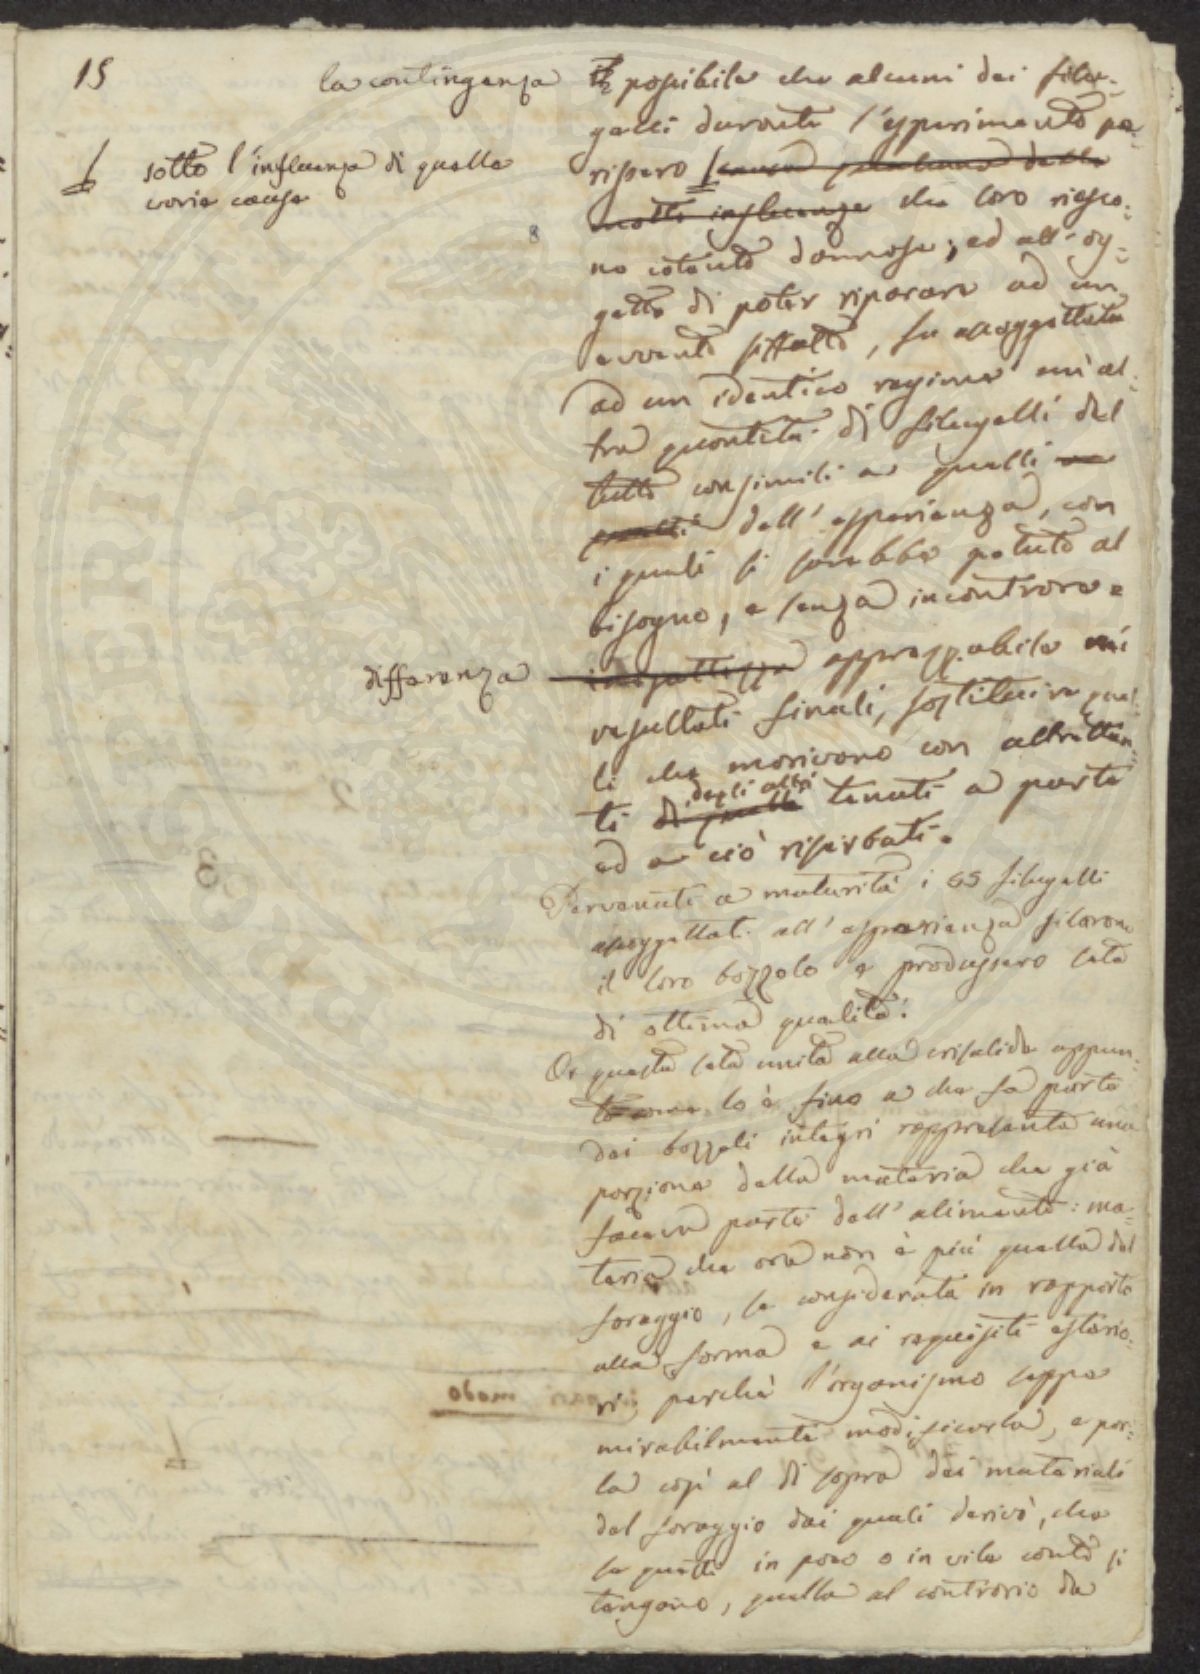 15
la contingenza
sotto l'influenza di quelle
varie cause
differenza
possibile che alcuni dei filu=
gelli durante l'esperimento pe=
rissero
molte influenze che loro riesco=
no cotanto dannose; ed all'og=
getto di poter riparare ad un
evento siffatto, fu assoggettata
ad un identico regime un'al=
tra quantità di filugelli del
tutto consimili a quelli
dell'esperienza, con
i quali si sarebbe potuto al
bisogno, e senza incontrare
inesattezza apprezzabile nei
resultati finali, sostituire quel=
li che morivano con altrettan=
ti di quelli degli altri tenuti a parte
ed a ciò riserbati.
Pervenuti a maturità i 65 filugelli
assoggettati all'esperienza filarono
il loro bozzolo e produssero seta
di ottima qualità.
Or questa seta unita alla crisalide appun=
lo è fino a che fa parte
dei bozzoli integri rappresenta una
porzione della materia che già
faceva parte dell'alimento: ma=
teria che ora non è più quella del
foraggio, se considerata in rapporto
alla forma e ai requisiti esterio=
ri, perchè l'organismo seppe
mirabilmente modificarla, e por=
la così al di sopra dei materiali
del foraggio dai quali derivò, che
se questi in poco o in vile conto si
tengono, quella al contrario da